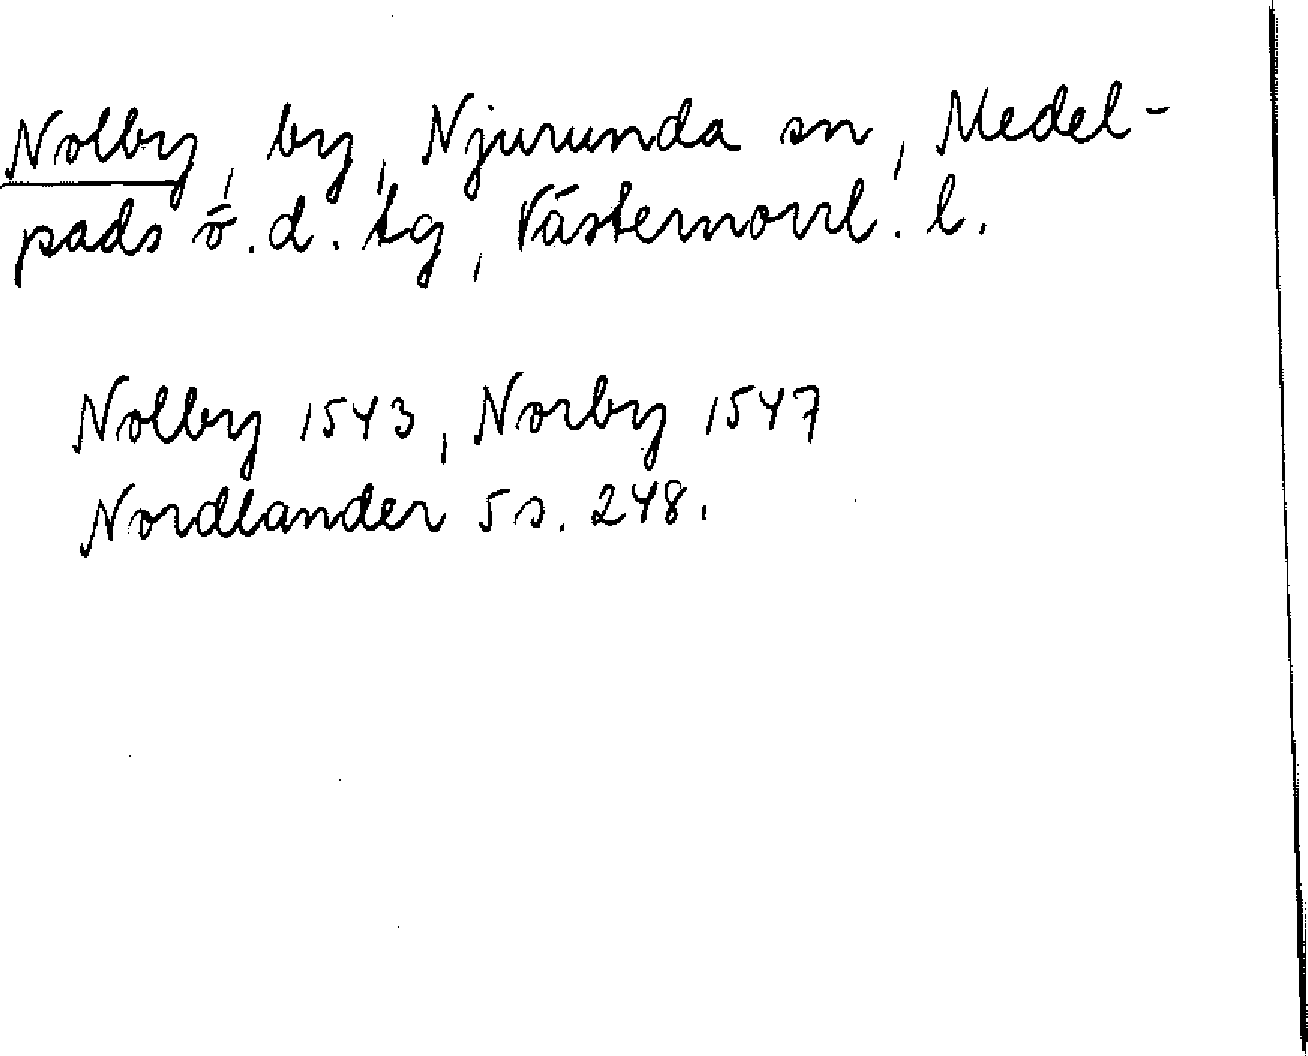 Nolby, by, Njurunda sn, Medel-
pads ö. d. tg, Västernorrl. l.
Nolby 1543, Norby 1547
Nordlander 5 s. 248.